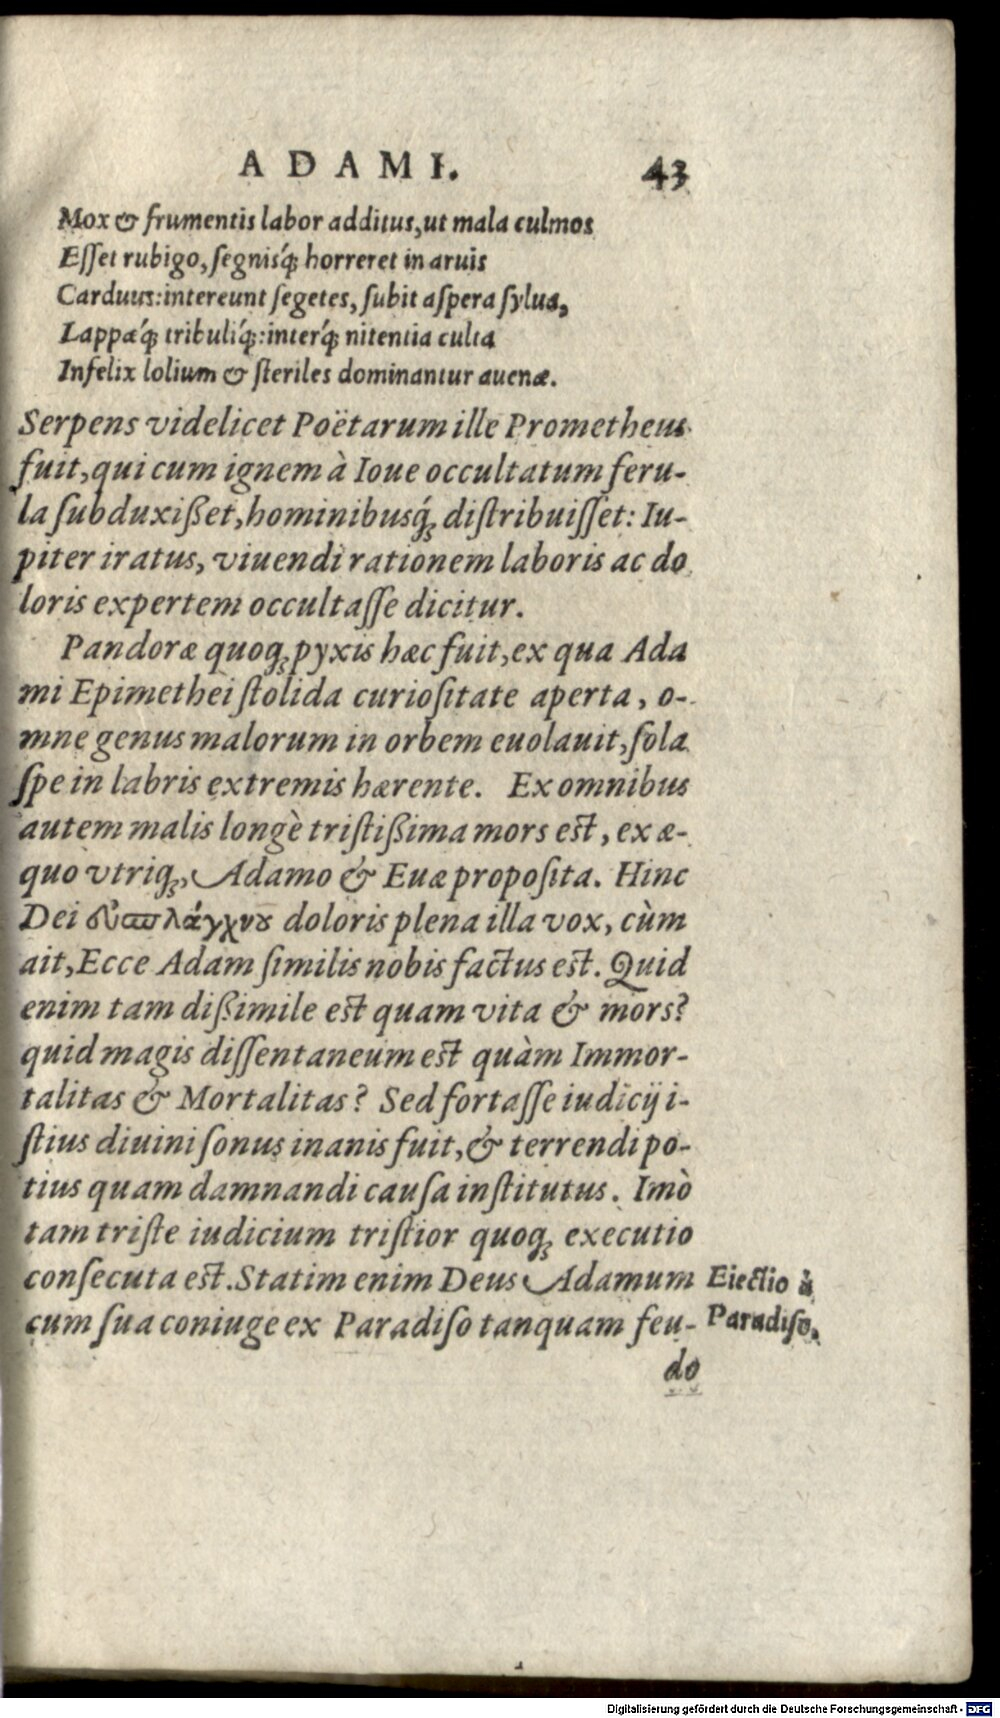 ADAMI. 43
Mox & frumentis labor additus, ut mala culmos
Esset rubigo, segnisq́; horreret in aruis
Carduus: intereunt segetes, subit aspera sylua,
Lappæq́; tribuliq́;: interq́; nitentia culta
Infelix lolium & steriles dominantur auenæ.
Serpens videlicet Poëtarum ille Prometheus
fuit, qui cum ignem à Ioue occultatum feru-
la subduxißet, hominibusq́; distribuisset: Iu-
piter iratus, viuendi rationem laboris ac do
loris expertem occultasse dicitur.
Pandoræ quoq; pyxis hæc fuit, ex qua Ada
mi Epimethei stolida curiositate aperta, o-
mne genus malorum in orbem euolauit, sola
spe in labris extremis hærente. Ex omnibus
autem malis longè tristißima mors est, ex æ-
quo vtriq;, Adamo & Euæ proposita. Hinc
Dei ευσπλάγχνου doloris plena illa vox, cùm
ait, Ecce Adam similis nobis factus est. Quid
enim tam dißimile est quam vita & mors?
quid magis dissentaneum est quàm Immor-
talitas & Mortalitas? Sed fortasse iudicij i-
stius diuini sonus inanis fuit, & terrendi po-
tius quam damnandi causa institutus. Imò
tam triste iudicium tristior quoq; executio
consecuta est. Statim enim Deus Adamum
cum sua coniuge ex Paradiso tanquam feu-
Eiectio à
Paradiso.
do
Digitalisierung gefördert durch die Deutsche Forschungsgemeinschaft - DFG